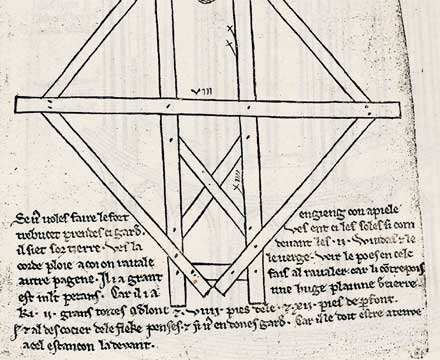 viii
Se ũ voles faire le fort engieng con apiele
trebucet prendes ci gard. Ves ent ci les soles si com
il siet sor tierre. Ves la devant les .ii. windas & le
corde ploie a coi on ravale le verge. Veir le poes en cele
autre pagene. Il i a grant fais al ravaler. car li cõtrepois
est mlt pezans. Car il i a une huge plainne d tierre.
Ki .ii. grans toizes a d lonc & .viiii. pies de le. & .xii. pies de pfont.
& al descocier de le fleke penses. & si ũ en dones gard. Car il le doit estre atenue
a cel estancon la devant.